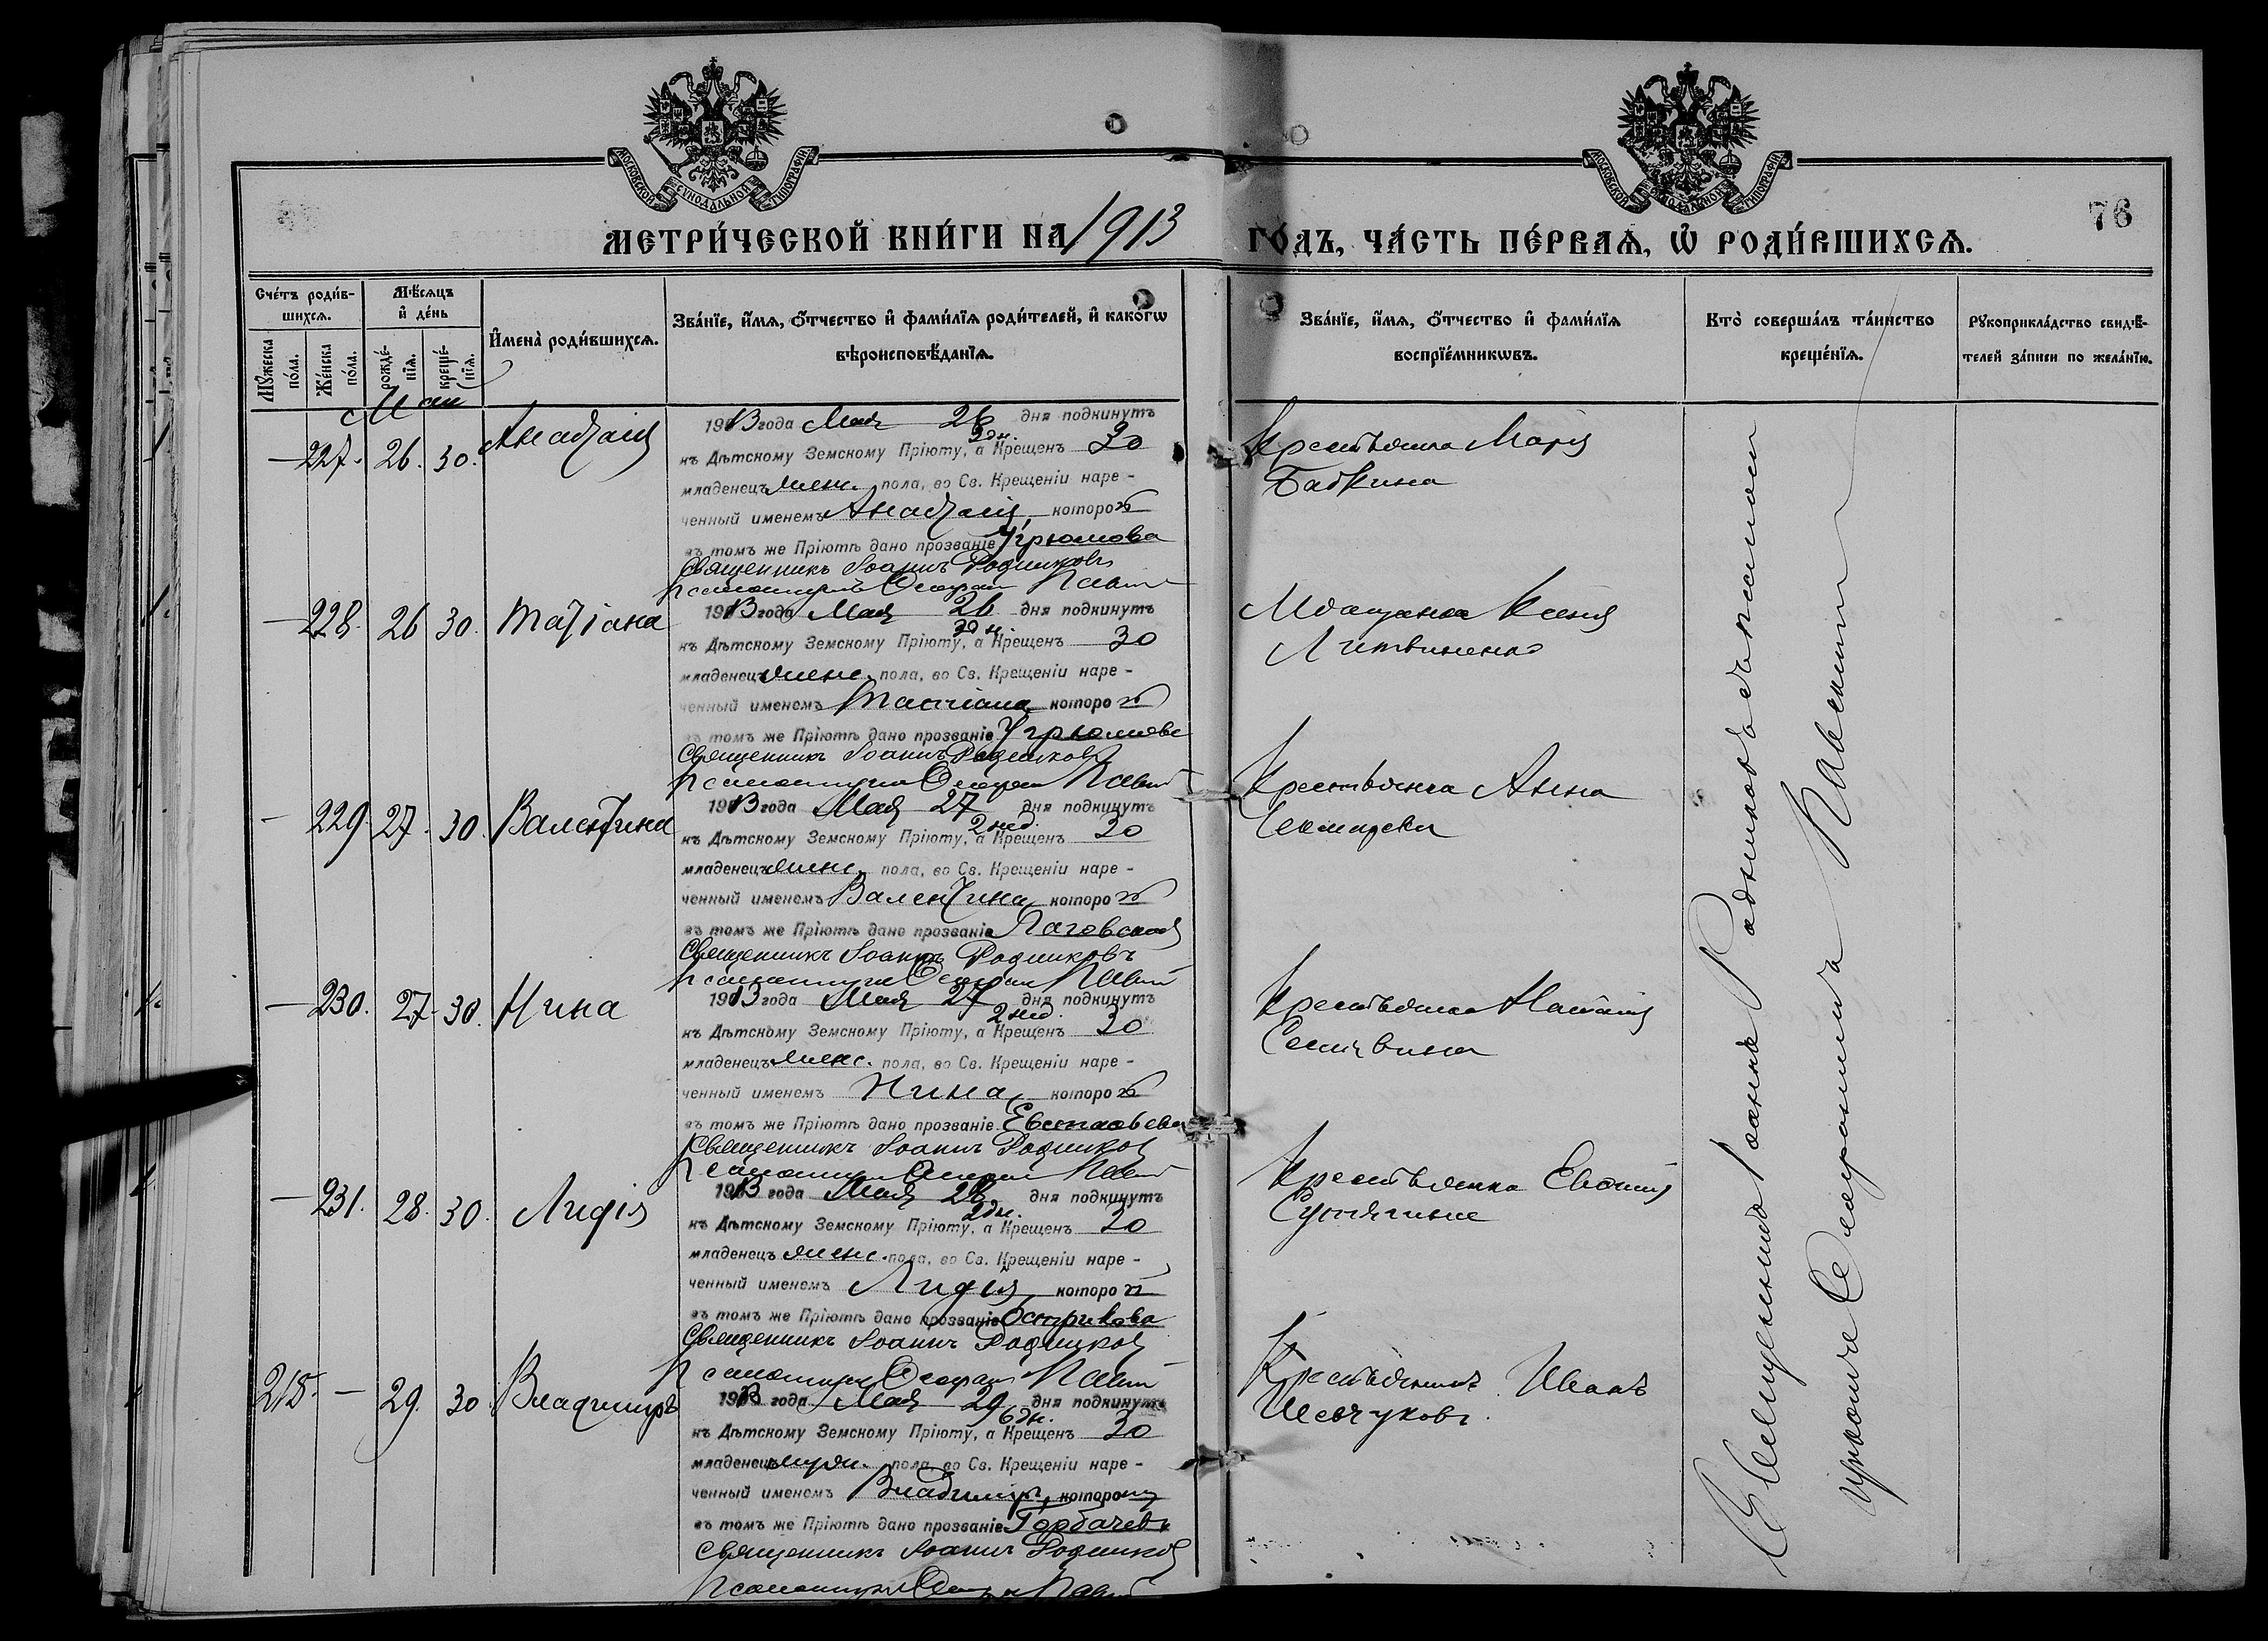 МОСКОВСКОЙ СѴНОДАЛЬНОЙ ТИПОГРАФІИ
МОСКОВСКОЙ СѴНОДАЛЬНОЙ ТИПОГРАФІИ
76
МЕТРИ́ЧЕСКОЙ КНИ́ГИ НА 1913 ГО́ДЪ, ЧА́СТЬ ПЕ́РВАѦ, Ѡ҆ РОДИ́ВШИХСѦ.
Сче́тъ роди́в-
шихсѧ.
Мꙋ́жеска по́ла.
Же́нска по́ла.
Мѣ́сѧцъ
и҆ де́нь
рожде́-
нїѧ.
креще́-
нїѧ.
И҆мена̀ роди́вшихсѧ.
Зва́нїе, и҆́мѧ, ѻ҆́тчество и҆ фами́лїѧ роди́телей, и҆ како́гѡ
вѣроисповѣ́данїѧ.
Зва́нїе, и҆́мѧ, ѻ҆́тчество и҆ фами́лїѧ
воспрїе́мникѡвъ.
Кто̀ соверша́лъ та́инство
креще́нїѧ.
Рꙋкоприкла́дство свидѣ́-
телей за́писи по жела́нїю.
Май
— 227. 26. 30.
1913 года Мая 26 дня подкинутъ
2 дн.
къ Дѣтскому Земскому Пріюту, а Крещенъ 30
младенецъ женс. пола, во Св. Крещеніи наре-
ченный именемъ которой
въ томъ же Пріютѣ дано прозваніе Угрюмова
Священникъ Іоаннъ Родниковъ
Псаломщикъ
Крестьянка Марія
Бабкина
— 228. 26 30. Татіана
1913 года Мая 26 дня подкинутъ
къ Дѣтскому Земскому Пріюту, а Крещенъ 30
младенецъ женс. пола, во Св. Крещеніи наре-
ченный именемъ Татіана, которой
въ томъ же Пріютѣ дано прозваніе Угрюмова
Священникъ Іоаннъ Родниковъ
Псаломщикъ
Мѣщанка Ксенія
Литвиненко
— 229. 27. 30. Валентина
1913 года Мая 27 дня подкинутъ
2 нед.
къ Дѣтскому Земскому Пріюту, а Крещенъ 30
младенецъ женс. пола, во Св. Крещеніи наре-
ченный именемъ Валентина, которой
въ томъ же Пріютѣ дано прозваніе Лаговская
Священникъ Іоаннъ Родниковъ
Псаломщикъ
Крестьянка Анна
— 230. 27. 30. Нина
1913 года Мая 27 дня подкинутъ
2 нед.
къ Дѣтскому Земскому Пріюту, а Крещенъ 30
младенецъ женс. пола, во Св. Крещеніи наре-
ченный именемъ Нина, которой
въ томъ же Пріютѣ дано прозваніе
Священникъ Іоаннъ Родниковъ
Псаломщикъ
Крестьянка Наталія
— 231. 28. 30. Лидія
1913 года Мая 28 дня подкинутъ
2 дн.
къ Дѣтскому Земскому Пріюту, а Крещенъ 30
младенецъ женс. пола, во Св. Крещеніи наре-
ченный именемъ Лидія, которой
въ томъ же Пріютѣ дано прозваніе Острикова
Священникъ Іоаннъ Родниковъ
Псаломщикъ
Крестьянка
218. — 29. 30 Владимиръ
1913 года Мая 29 дня подкинутъ
6 дн.
къ Дѣтскому Земскому Пріюту, а Крещенъ 30
младенецъ муж. пола, во Св. Крещеніи наре-
ченный именемъ Владимиръ, которому
въ томъ же Пріютѣ дано прозваніе Горбачевъ
Священникъ Іоаннъ Родниковъ
Псаломщикъ
Крестьянинъ Иванъ
Шевчуковъ.
Священникъ Іоаннъ Родниковъ съ псаломщи-